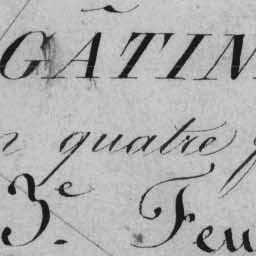 GÂTIN
n quatre f
3.e Feu